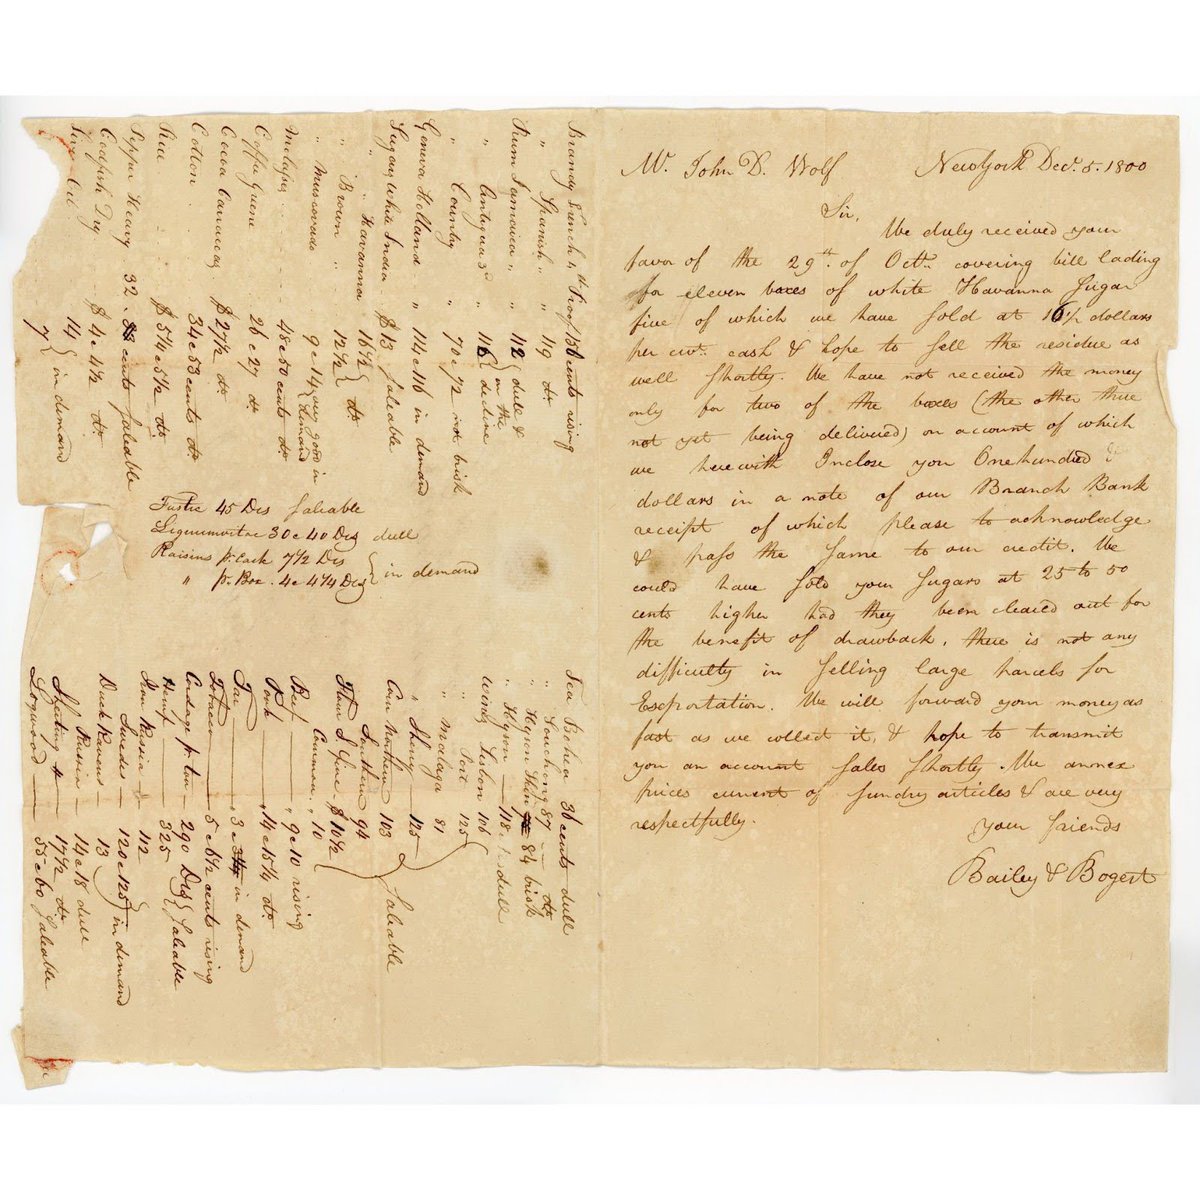 Mr. John D. Wolf
New York Decr. 5. 1800
Sir,
We duly received your
favor of the 29th. of Octr. covering bill lading
for eleven boxes of white Havanna Sugar
five of which we have sold at 16½ dollars
per cwt. cash & hope to sell the residue as
well shortly. We have not received the money
only for two of the boxes (the other three
not yet being delivered) on account of which
we herewith Inclose you One hundred
dollars in a note of our Branch Bank
receipt of which please to acknowledge
& pass the same to our credit. We
could have sold your sugars at 25 to 50
cents higher had they been cleared out for
the benefit of drawback, there is not any
difficulty in selling large parcels for
Exportation. We will forward your money as
fast as we collect it, & hope to transmit
you an account sales shortly. We annex
prices current of sundry articles & are very
respectfully.
Your friends
Bailey & Bogert
Brandy French 4th Proof 136 cents rising
" Spanish " " 119 do
Rum Jamaica " " 112 dull &
" Antigua 3d " 116 on the decline
" Country " 70 @ 72 not brisk
Geneva Holland " 114 @ 116 in demand
Sugar White India $13 saleable
" " Havanna " 16½
" Brown " 12½ do
" Muscovado " 9 @ 14 very good in demand
Molasses 48 @ 50 cents do
Coffee Guene 26 @ 27 do
Cocoa Carracas $27½ do
Cotton 34 @ 53 cents do
Rice $5¼ @ 5½ do
Pepper Heavy 32 cents saleable
Codfish Dry $4 @ 4½ do
14
7 in demand
Fustic 45 Drs saleable
Lignumvitae 30 @ 40 Drs dull
Raisins pr. Cask 7½ Drs
" pr. Box 4 @ 4¼ Drs in demand
Tea Bohea 36 cents dull
" Souchong 87 do
" Hyson Skin 84 brisk
" Hyson 118 dull
Wines Lisbon 106
" Port 125
" Malaga 81
" Sherry 125 saleable
Corn Northern 103
Southern 94
Flour S. fine $10½
Common " 10
Beef " 9 @ 10 rising
Pork " 14 @ 15¼ do
Tar " 3 @ in demand
Tobacco 5 @ 5½ cents rising
Cordage pr. ton 290 Drs
Hemp 325 saleable
Iron Russia 112
Swedes 120 @ 125 in demand
Duck Ravens 13
" Russia 14 @ 18 dull
Sheeting 17½ do
Logwood 55 @ 60 saleable